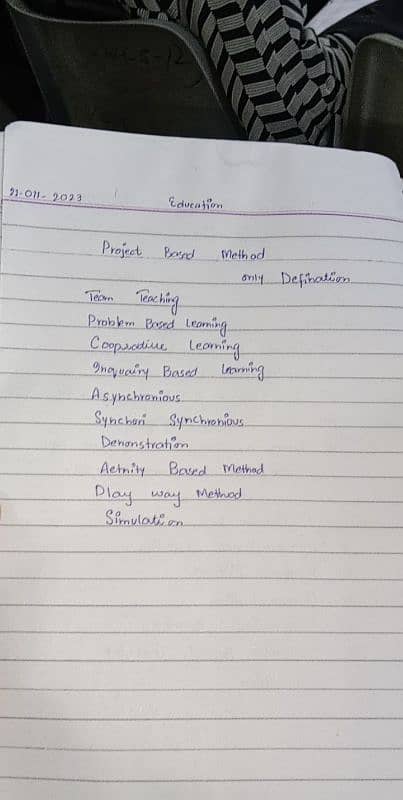 21-011-2023
Education
Project Based Method
only Defination
Team Teaching
Problem Based Learning
Cooperative Learning
Inquairy Based Learning
Asynchronious
Synchoni Synchronious
Demonstration
Activity Based Method
Play way Method
Simulation